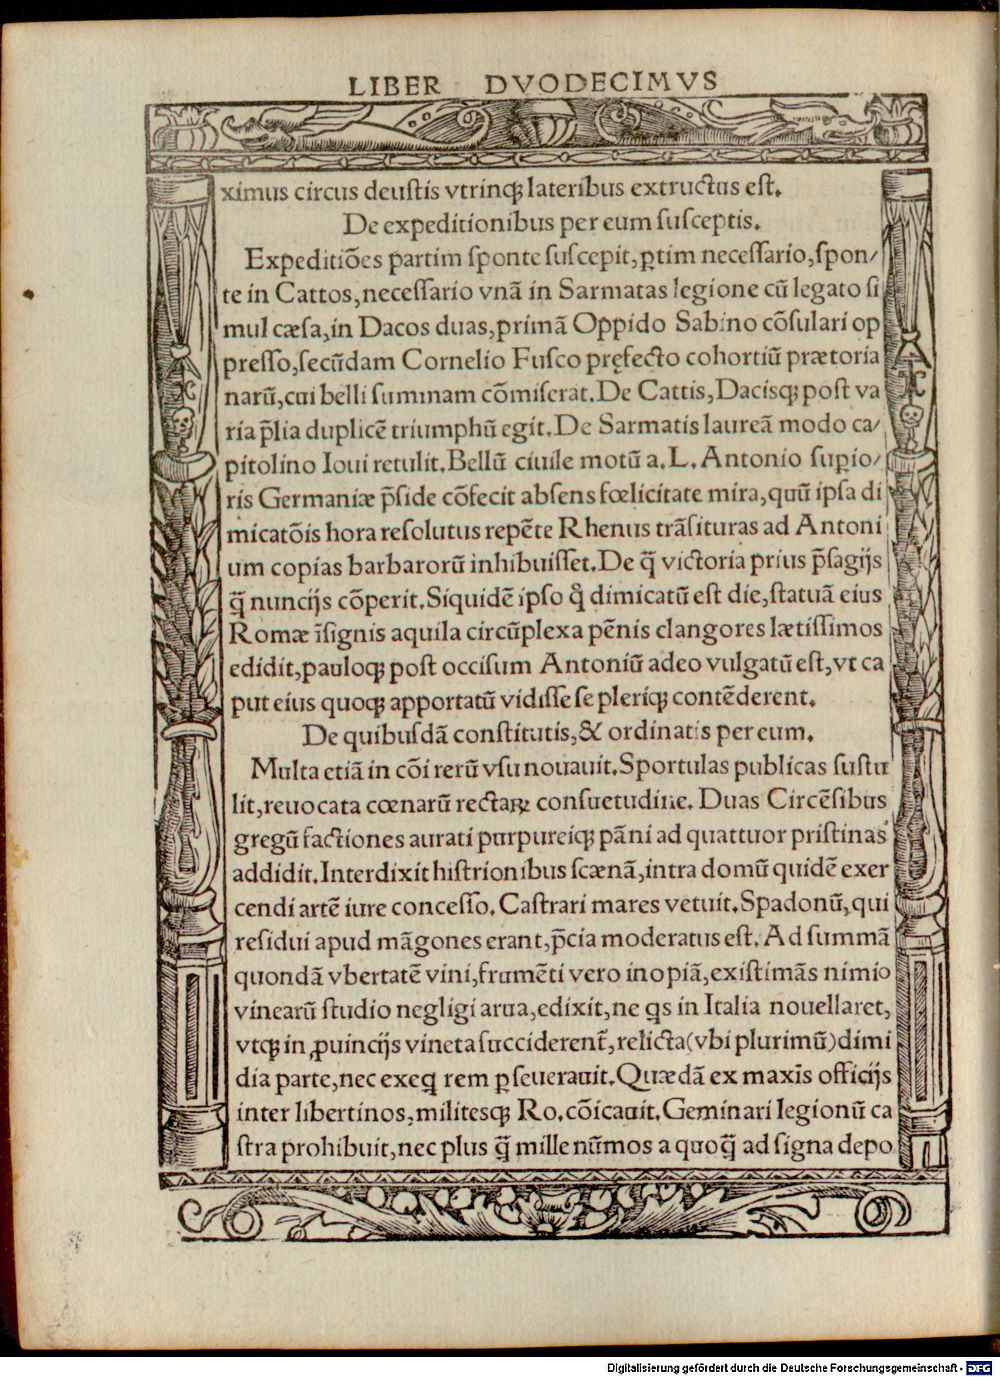 LIBER DVODECIMVS
ximus circus deustis vtrinqꝫ lateribus extructus est.
De expeditionibus per eum susceptis.
Expeditiões partim sponte suscepit, ꝑtim necessario, spon/
te in Cattos, necessario vnã in Sarmatas legione cũ legato si
mul cæsa, in Dacos duas, primã Oppido Sabino cõsulari op
presso, secũdam Cornelio Fusco pręfecto cohortiũ prætoria
narũ, cui belli summam cõmiserat. De Cattis, Dacisqꝫ post va
ria p̃lia duplicẽ triumphũ egit. De Sarmatis laureã modo ca/
pitolino Ioui retulit. Bellũ ciuile motũ a. L. Antonio suꝑio/
ris Germaniæ p̃side cõfecit absens fœlicitate mira, quũ ipsa di
micatõis hora resolutus repẽte Rhenus trãsituras ad Antoni
um copias barbarorũ inhibuisset. De q̃ victoria prius p̃sagijs
q̃ nuncijs cõperit. Siquidẽ ipso q̊ dimicatũ est die, statuã eius
Romæ ĩsignis aquila circũplexa pẽnis clangores lætissimos
edidit, pauloqꝫ post occisum Antoniũ adeo vulgatũ est, vt ca
put eius quoqꝫ apportatũ vidisse se pleriqꝫ contẽderent.
De quibusdã constitutis, & ordinatis per eum.
Multa etiã in cõi rerũ vsu nouauit. Sportulas publicas sustu
lit, reuocata cœnarũ rectaꝝ consuetudine. Duas Circẽsibus
gregũ factiones aurati purpureiqꝫ pãni ad quattuor pristinas
addidit. Interdixit histrionibus scænã, intra domũ quidẽ exer
cendi artẽ iure concesso. Castrari mares vetuit. Spadonũ, qui
residui apud mãgones erant, p̃cia moderatus est. Ad summã
quondã vbertatẽ vini, frumẽti vero inopiã, existimãs nimio
vinearũ studio negligi arua, edixit, ne qs in Italia nouellaret,
vtqꝫ in ꝓuincijs vineta succiderent̃, relicta (vbi plurimũ) dimi
dia parte, nec exeq rem ꝑseuerauit. Quædã ex maxĩs officijs
inter libertinos, militesqꝫ Ro. cõicauit. Geminari legionũ ca
stra prohibuit, nec plus q̃ mille nũmos a quoq̃ ad signa depo
Digitalisierung gefördert durch die Deutsche Forschungsgemeinschaft - DFG